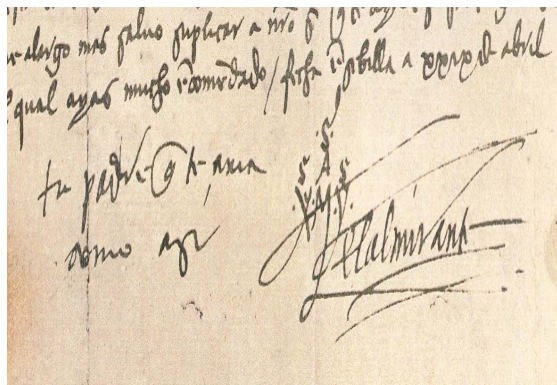 alargo mas salvo suplicar a nro S q
qual ayas mucho ẽcomẽdado / fecha ẽ sebilla a xxix de abril
tu padre q te ama
como a sy
.S.
.S. A .S.
X M Y
El almirante